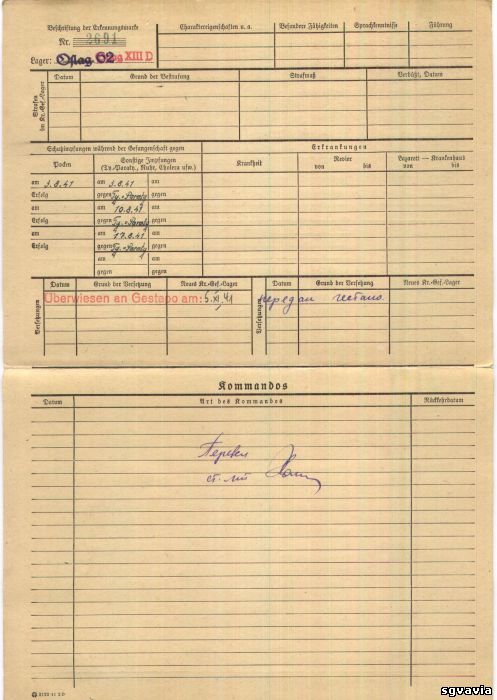 Beschriftung der Erkennungsmarke
Nr. 2691
Lager: Oflag 62 XIII D
Charaktereigenschaften u. a.
Besondere Fähigkeiten
Sprachkenntnisse
Führung
Strafen im Kr.-Gef.-Lager
Datum
Grund der Bestrafung
Strafmaß
Verbüßt, Datum
Schutzimpfungen während der Gefangenschaft gegen
Erkrankungen
Pocken
Sonstige Impfungen
(Ty.-Paraty., Ruhr, Cholera usw.)
Krankheit
Revier
von bis
Lazarett — Krankenhaus
von bis
am 3.8.41 am 3.8.41 am
Erfolg gegen Ty.-Paraty gegen
am am 10.8.41 am
Erfolg gegen Ty.-Paraty gegen
am am 17.8.41 am
Erfolg gegen Ty.-Paraty gegen
am am
gegen gegen
Versetzungen
Datum
Grund der Versetzung
Neues Kr.-Gef.-Lager
Versetzungen
Datum
Grund der Versetzung
Neues Kr.-Gef.-Lager
Überwiesen an Gestapo am: 5.XI.41
передан гестапо.
Kommandos
Datum
Art des Kommandos
Rückkehrdatum
Перевел
ст. лт
sgvavia